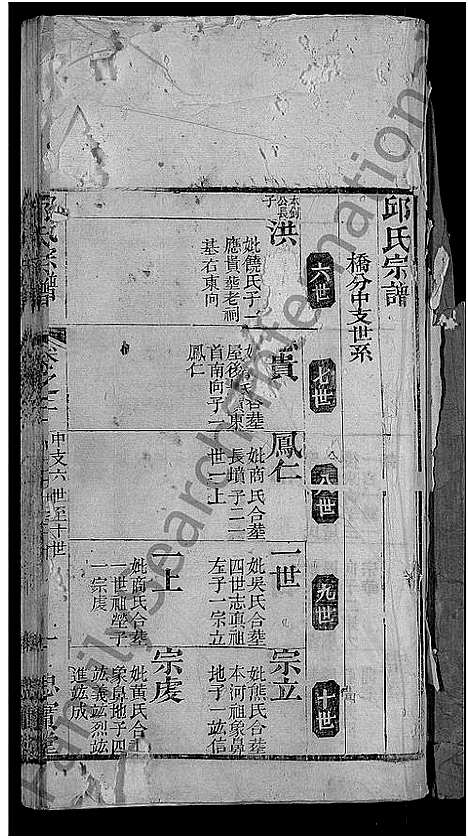 邱氏宗譜
橋分中支世系
六世
七世
八世
九世
十世
公長
子
洪
妣饒氏子一
應貴葬老祠
基右東向
貴
氏合葬
屋後 墳東
首南向子一
鳳仁
鳳仁
妣商氏合葬
長墳子二一
世一上
一世
妣吳氏合葬
四世志真祖
左子一宗立
一上
妣商氏合葬
一世祖塋子
一宗虔
宗立
妣熊氏合葬
本河祖象鼻
地子一竑信
宗虔
妣黃氏合
象鼻地子四
竑義竑烈竑
進竑成
宗譜
中支六世至十世
忠實堂
FamilySearch International